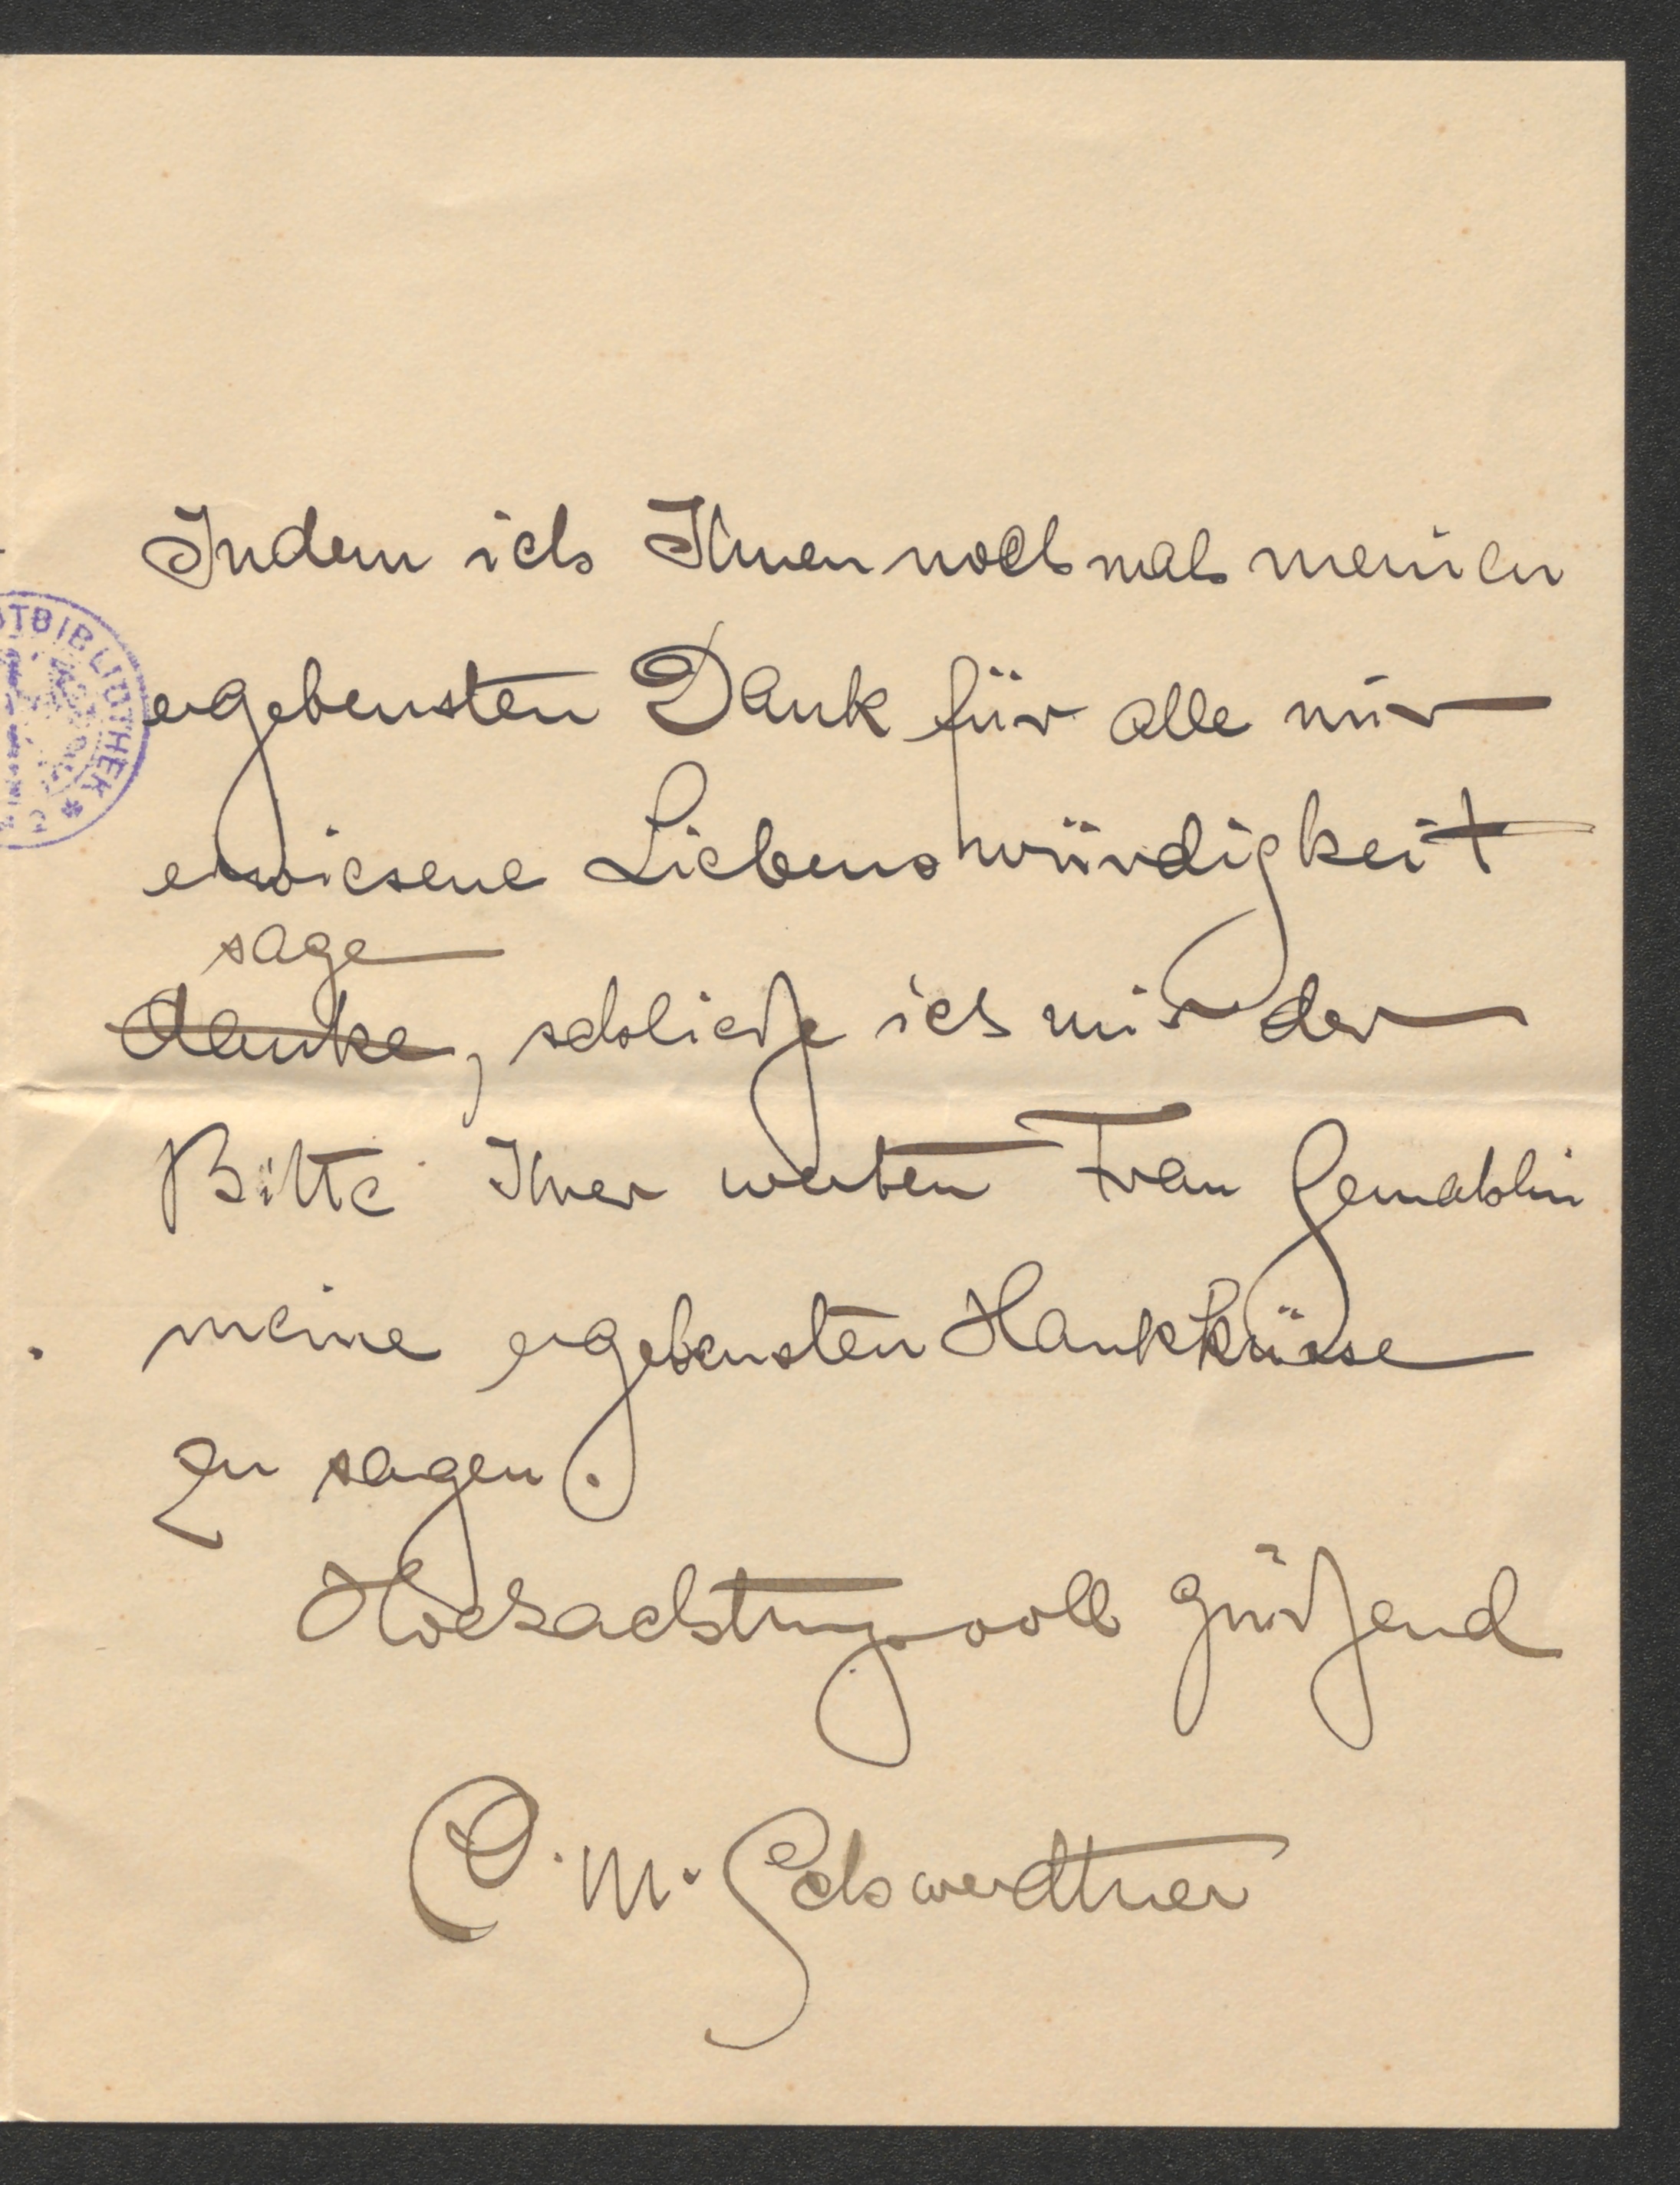 Indem ich Ihnen nochmals meinen
ergebensten Dank für alle mir
erwiesene Liebenswürdigkeit
sage
danke, schließe ich mit der
Bitte Ihrer werten Frau Gemahlin
meine ergebensten Hankküsse
zu sagen.
Hochachtungsvoll grüßend
C. M. Schwerdtner
TBIBLIOTHEK *